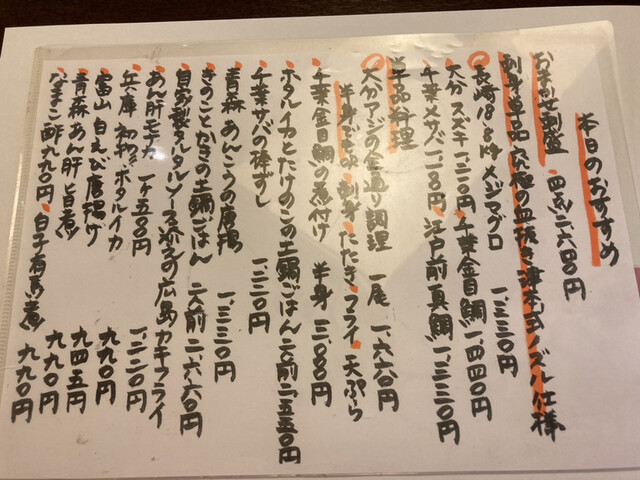 本日のおすすめ
お刺身盛 四点 二、六四〇円
刺身単品 究極の血抜き津本式ノズル仕様
長崎18.8kgメジマグロ 一、三三〇円
大分スズキ 一、二一〇円 千葉金目鯛 一、四四〇円
千葉〆サバ 一、一〇八円 江戸前真鯛 一、三二〇円
単品料理
大分アジの全通り調理 一尾 一、六六〇円
半身ごとに 刺身 たたき フライ 天ぷら
千葉金目鯛の煮付け 半身 三、〇八〇円
ホタルイカとたけのこの土鍋ごはん 二人前 二、五五〇円
千葉サバの棒ずし 一、二一〇円
青森あんこうの唐揚 一、三三〇円
きのことかきの土鍋ごはん 二人前 二、六六〇円
自家製タルタルソース添えの広島カキフライ
あん肝モナカ 一ヶ 五五〇円 一、二一〇円
兵庫 初物!ホタルイカ 九九〇円
富山 白えび唐揚げ 九四五円
青森あん肝旨煮! 九九〇円
なまこ酢 九九〇円 白子有馬煮! 九九〇円